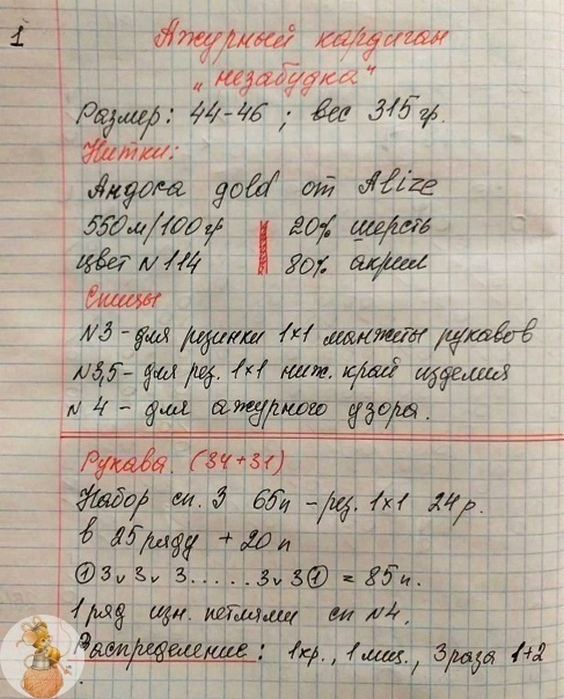 1
Ажурный кардиган
„незабудка"
Размер: 44-46 ; вес 315 гр.
Нитки:
Андора gold от Alize
550м/100гр 20% шерсть
цвет N 114 80% акрил
Спицы
N3 - для резинки 1×1 манжеты рукавов
N3,5 - для рез. 1×1 ниж. край изделия
N 4 - для ажурного узора.
Рукава. (34+31)
Набор сп. 3 65п - рез. 1×1 24 р.
в 25 ряду + 20 п
① 3 v 3 v 3 ...... 3 v 3 ① = 85 п.
1 ряд изн. петлями сп N4.
Распределение: 1 кр., 1 лиц., 3 раза 1+2